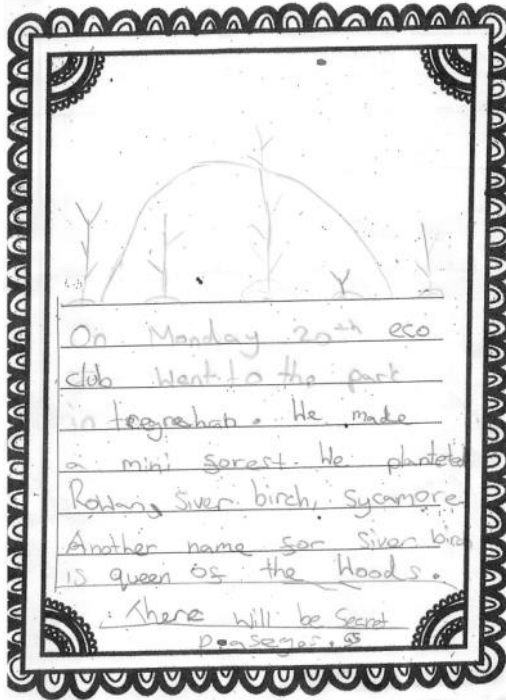 On Monday 20th eco
club Went to the park
in We made
a mini forest. We planteted
Rowan, Siver birch, Sycamore
Another name for Siver birch
is queen of the Woods.
There will be Secret